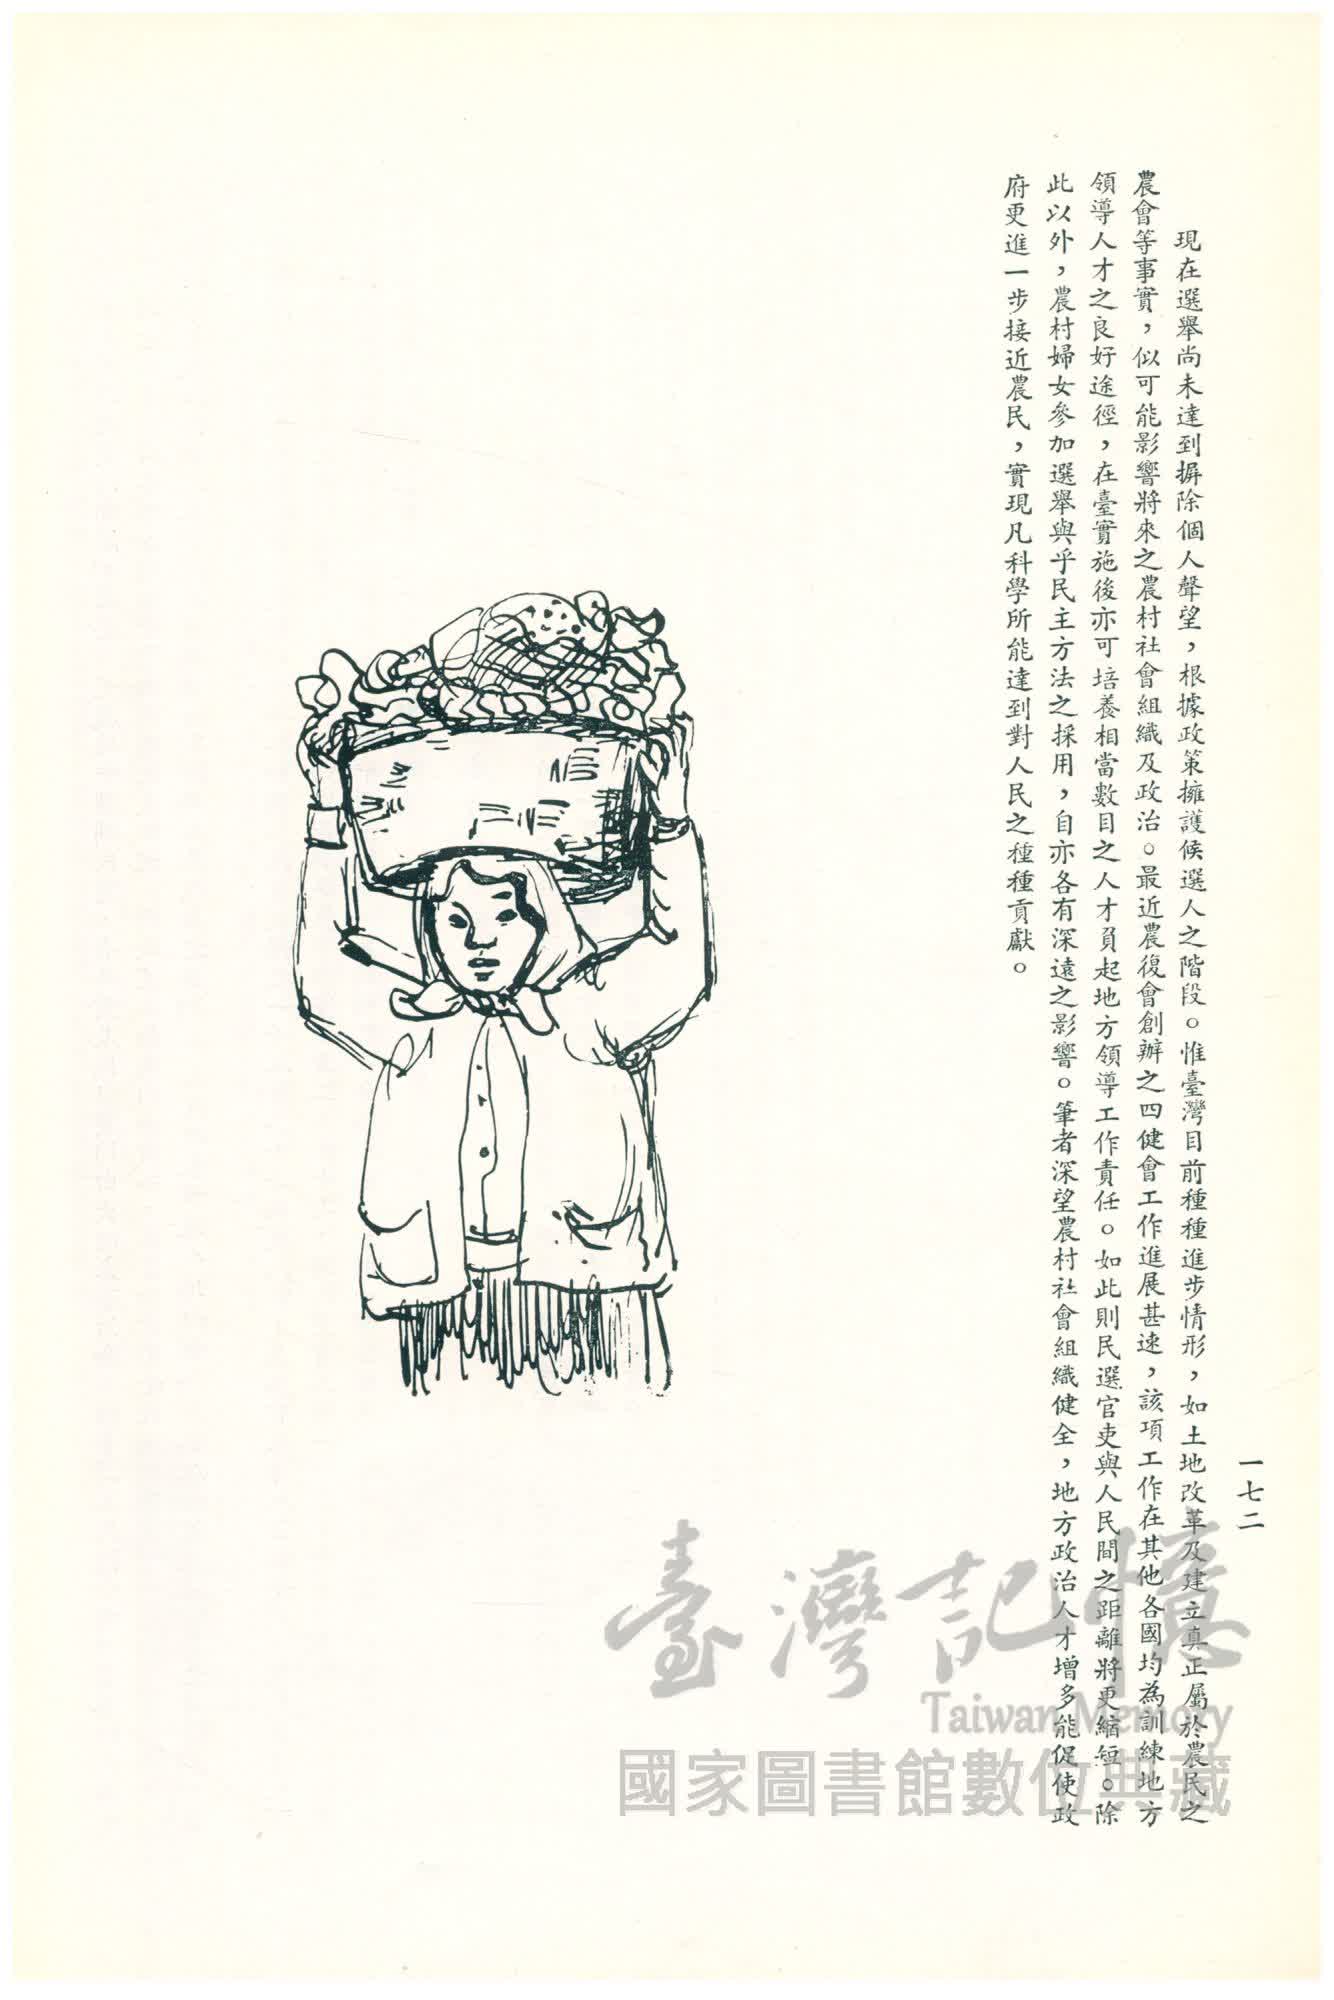 一七二
現在選舉尚未達到摒除個人聲望，根據政策擁護候選人之階段。惟臺灣目前種種進步情形，如土地改革及建立真正屬於農民之
農會等事實，似可能影響將來之農村社會組織及政治。最近農復會創辦之四健會工作進展甚速，該項工作在其他各國均為訓練地方
領導人才之良好途徑，在臺實施後亦可培養相當數目之人才負起地方領導工作責任。如此則民選官吏與人民間之距離將更縮短。除
此以外，農村婦女參加選舉與乎民主方法之採用，自亦各有深遠之影響。筆者深望農村社會組織健全，地方政治人才增多能促使政
府更進一步接近農民，實現凡科學所能達到對人民之種種貢獻。
臺灣記憶
Taiwan Memory
國家圖書館數位典藏